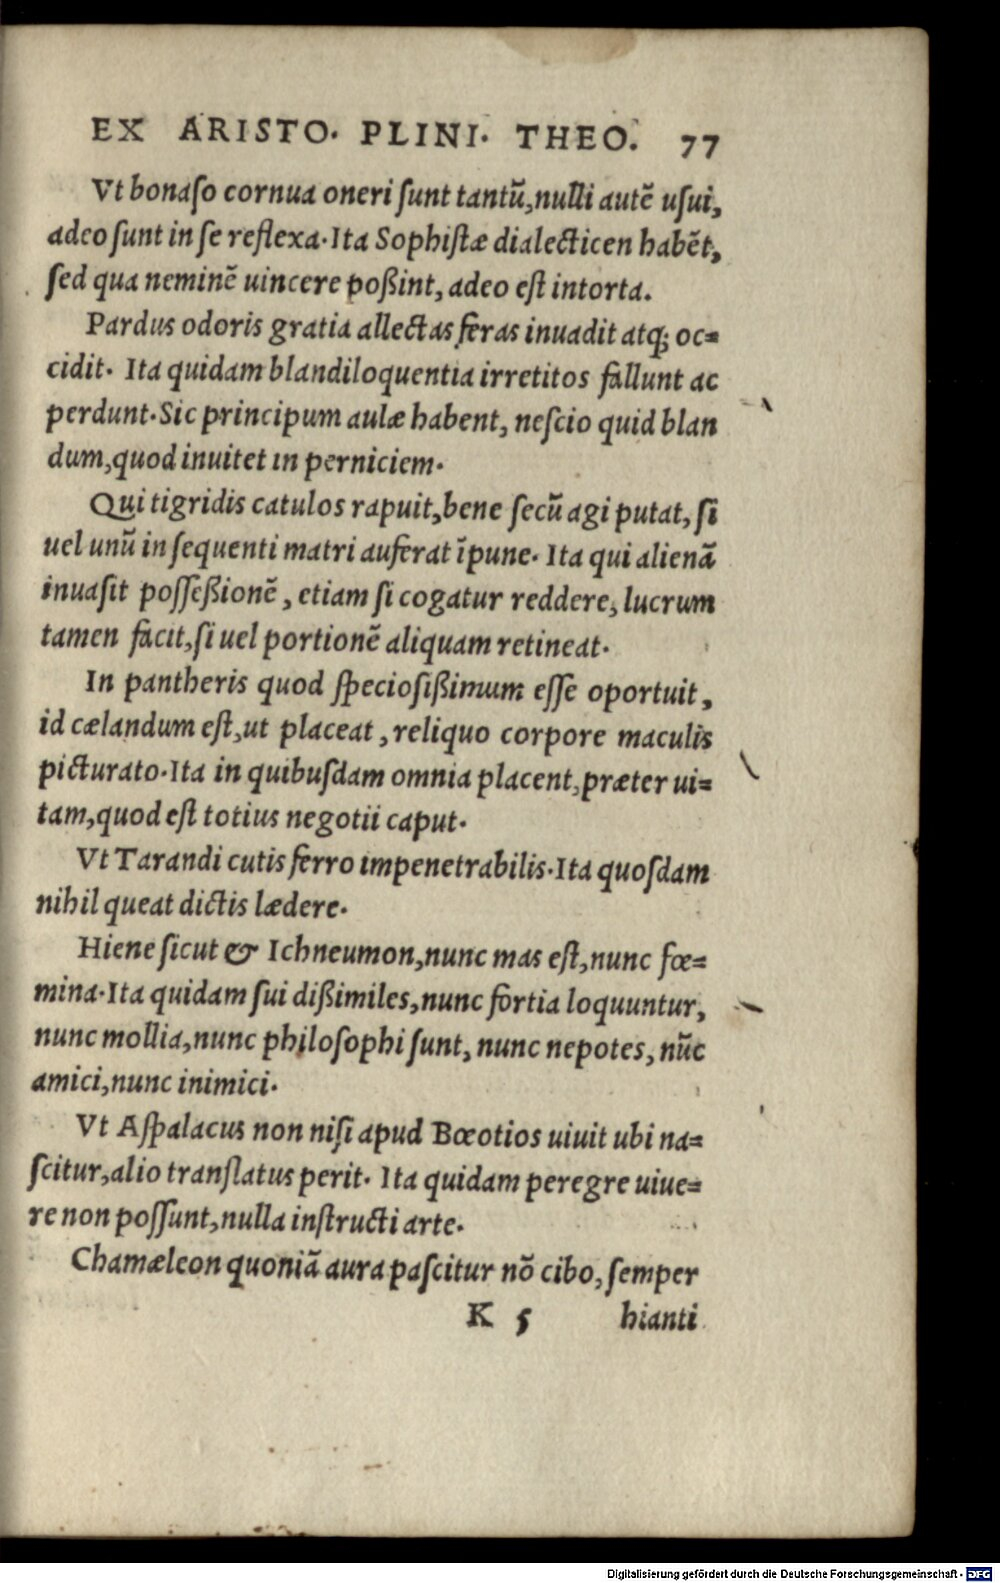 EX ARISTO. PLINI. THEO. 77
Vt bonaſo cornua oneri ſunt tantũ,nulli autẽ uſui,
adeo ſunt in ſe reflexa.Ita Sophiſtæ dialecticen habẽt,
ſed qua neminẽ uincere poßint, adeo eſt intorta.
Pardus odoris gratia allectas feras inuadit atq; oc=
cidit. Ita quidam blandiloquentia irretitos fallunt ac
perdunt.Sic principum aulæ habent, neſcio quid blan
dum,quod inuitet in perniciem.
Qui tigridis catulos rapuit,bene ſecũ agi putat, ſi
uel unũ inſequenti matri auferat ĩpune. Ita qui alienã
inuaſit poſſeßionẽ, etiam ſi cogatur reddere, lucrum
tamen facit,ſi uel portionẽ aliquam retineat.
In pantheris quod ſpecioſißimum eſſe oportuit,
id cælandum eſt,ut placeat, reliquo corpore maculis
picturato.Ita in quibuſdam omnia placent,præter ui=
tam,quod eſt totius negotii caput.
Vt Tarandi cutis ferro impenetrabilis.Ita quoſdam
nihil queat dictis lædere.
Hiene ſicut & Ichneumon,nunc mas eſt,nunc fœ=
mina.Ita quidam ſui dißimiles,nunc fortia loquuntur,
nunc mollia,nunc philoſophi ſunt, nunc nepotes, nũc
amici,nunc inimici.
Vt Aſpalacus non niſi apud Bœotios uiuit ubi na=
ſcitur,alio tranſlatus perit. Ita quidam peregre uiue=
re non poſſunt,nulla inſtructi arte.
Chamæleon quoniã aura paſcitur nõ cibo, ſemper
K 5 hianti
Digitalisierung gefördert durch die Deutsche Forschungsgemeinschaft - DFG